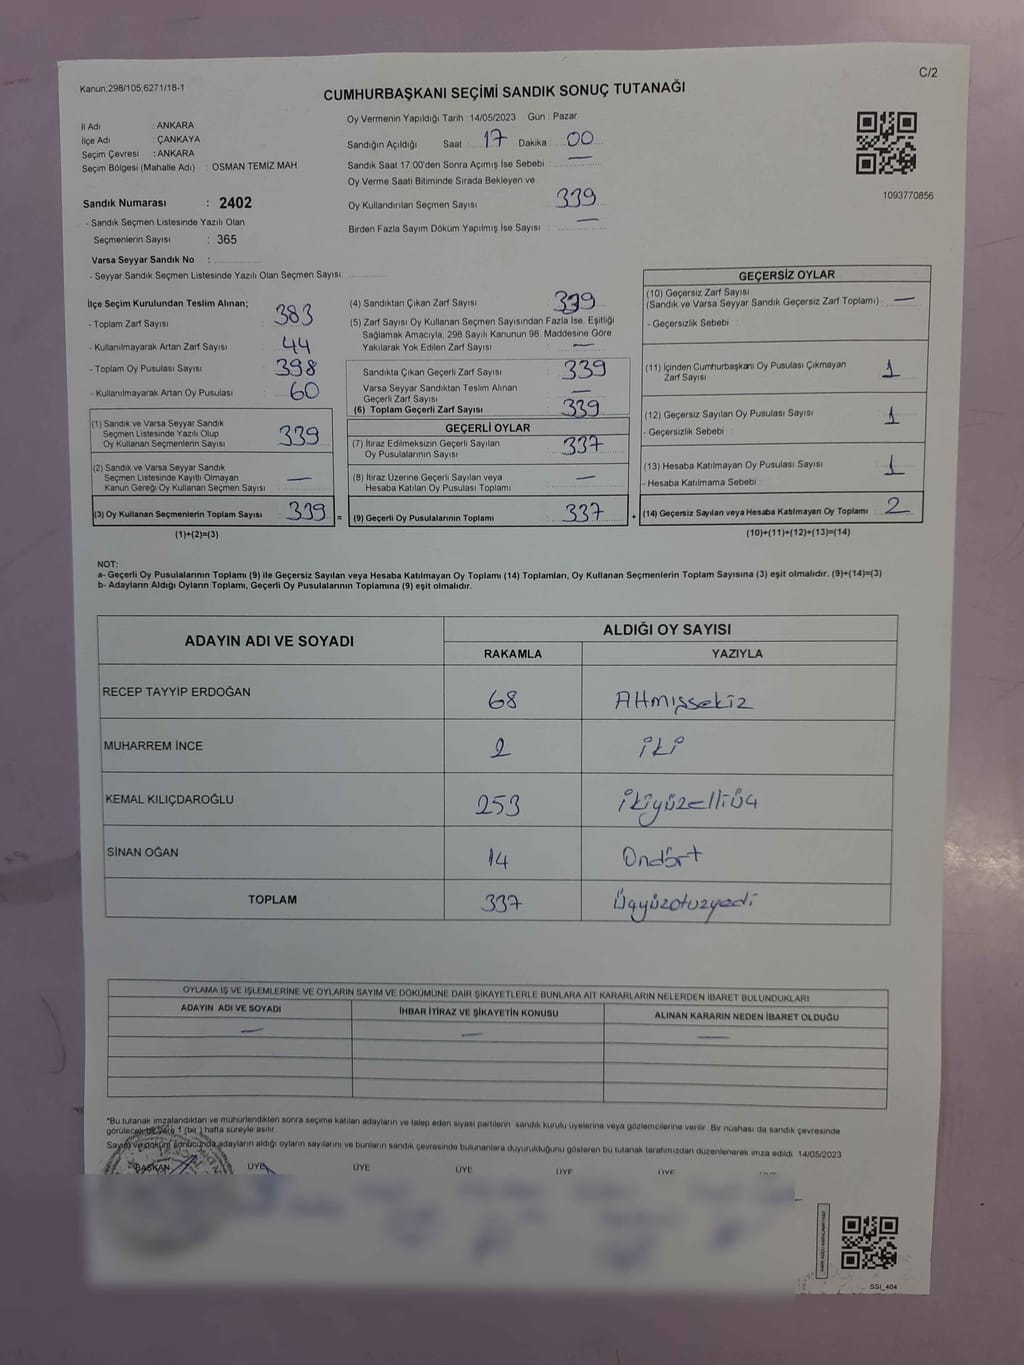 C/2
Kanun.298/105,6271/18-1
CUMHURBAŞKANI SEÇİMİ SANDIK SONUÇ TUTANAĞI
İl Adı : ANKARA
İlçe Adı : ÇANKAYA
Seçim Çevresi : ANKARA
Seçim Bölgesi (Mahalle Adı) : OSMAN TEMİZ MAH.
Oy Vermenin Yapıldığı Tarih 14/05/2023 Gün : Pazar
Sandığın Açıldığı Saat : 17 Dakika : 00
Sandık Saat 17:00'den Sonra Açımış İse Sebebi : —
Oy Verme Saati Bitiminde Sırada Bekleyen ve
Oy Kullandırılan Seçmen Sayısı : 339
Birden Fazla Sayım Döküm Yapılmış İse Sayısı : —
1093770856
Sandık Numarası : 2402
- Sandık Seçmen Listesinde Yazılı Olan
Seçmenlerin Sayısı : 365
Varsa Seyyar Sandık No :
- Seyyar Sandık Seçmen Listesinde Yazılı Olan Seçmen Sayısı:
İlçe Seçim Kurulundan Teslim Alınan;
- Toplam Zarf Sayısı : 383
- Kullanılmayarak Artan Zarf Sayısı : 44
- Toplam Oy Pusulası Sayısı : 398
- Kullanılmayarak Artan Oy Pusulası : 60
(1) Sandık ve Varsa Seyyar Sandık
Seçmen Listesinde Yazılı Olup
Oy Kullanan Seçmenlerin Sayısı : 339
(2) Sandık ve Varsa Seyyar Sandık
Seçmen Listesinde Kayıtlı Olmayan
Kanun Gereği Oy Kullanan Seçmen Sayısı : —
(3) Oy Kullanan Seçmenlerin Toplam Sayısı : 339
(1)+(2)=(3)
(4) Sandıktan Çıkan Zarf Sayısı : 339
(5) Zarf Sayısı Oy Kullanan Seçmen Sayısından Fazla İse, Eşitliği
Sağlamak Amacıyla, 298 Sayılı Kanunun 98. Maddesine Göre
Yakılarak Yok Edilen Zarf Sayısı : —
Sandıkta Çıkan Geçerli Zarf Sayısı : 339
Varsa Seyyar Sandıktan Teslim Alınan
Geçerli Zarf Sayısı : —
(6) Toplam Geçerli Zarf Sayısı : 339
GEÇERLİ OYLAR
(7) İtiraz Edilmeksizin Geçerli Sayılan
Oy Pusulalarının Sayısı : 337
(8) İtiraz Üzerine Geçerli Sayılan veya
Hesaba Katılan Oy Pusulası Toplamı : —
= (9) Geçerli Oy Pusulalarının Toplamı : 337
GEÇERSİZ OYLAR
(10) Geçersiz Zarf Sayısı
(Sandık ve Varsa Seyyar Sandık Geçersiz Zarf Toplamı) : —
- Geçersizlik Sebebi :
(11) İçinden Cumhurbaşkanı Oy Pusulası Çıkmayan
Zarf Sayısı : 1
(12) Geçersiz Sayılan Oy Pusulası Sayısı : 1
- Geçersizlik Sebebi :
(13) Hesaba Katılmayan Oy Pusulası Sayısı : 1
- Hesaba Katılmama Sebebi :
+ (14) Geçersiz Sayılan veya Hesaba Katılmayan Oy Toplamı : 2
(10)+(11)+(12)+(13)=(14)
NOT:
a- Geçerli Oy Pusulalarının Toplamı (9) ile Geçersiz Sayılan veya Hesaba Katılmayan Oy Toplamı (14) Toplamları, Oy Kullanan Seçmenlerin Toplam Sayısına (3) eşit olmalıdır. (9)+(14)=(3)
b- Adayların Aldığı Oyların Toplamı, Geçerli Oy Pusulalarının Toplamına (9) eşit olmalıdır.
ADAYIN ADI VE SOYADI ALDIĞI OY SAYISI
RAKAMLA YAZIYLA
RECEP TAYYİP ERDOĞAN 68 Altmışsekiz
MUHARREM İNCE 2 iki
KEMAL KILIÇDAROĞLU 253 ikiyüzelliüç
SİNAN OĞAN 14 Ondört
TOPLAM 337 Üçyüzotuzyedi
OYLAMA İŞ VE İŞLEMLERİNE VE OYLARIN SAYIM VE DÖKÜMÜNE DAİR ŞİKAYETLERLE BUNLARA AİT KARARLARIN NELERDEN İBARET BULUNDUKLARI
ADAYIN ADI VE SOYADI İHBAR İTİRAZ VE ŞİKAYETİN KONUSU ALINAN KARARIN NEDEN İBARET OLDUĞU
— — —
*Bu tutanak imzalandıktan ve mühürlendikten sonra seçime katılan adayların ve talep eden siyasi partilerin sandık kurulu üyelerine veya gözlemcilerine verilir. Bir nüshası da sandık çevresinde
görülecek bir yere 1 (bir ) hafta süreyle asılır.
Sayım ve döküm sonucunda adayların aldığı oyların sayılarını ve bunların sandık çevresinde bulunanlara duyurulduğunu gösteren bu tutanak tarafımızdan düzenlenerek imza edildi. 14/05/2023
BAŞKAN ÜYE ÜYE ÜYE ÜYE ÜYE
SSİ_404